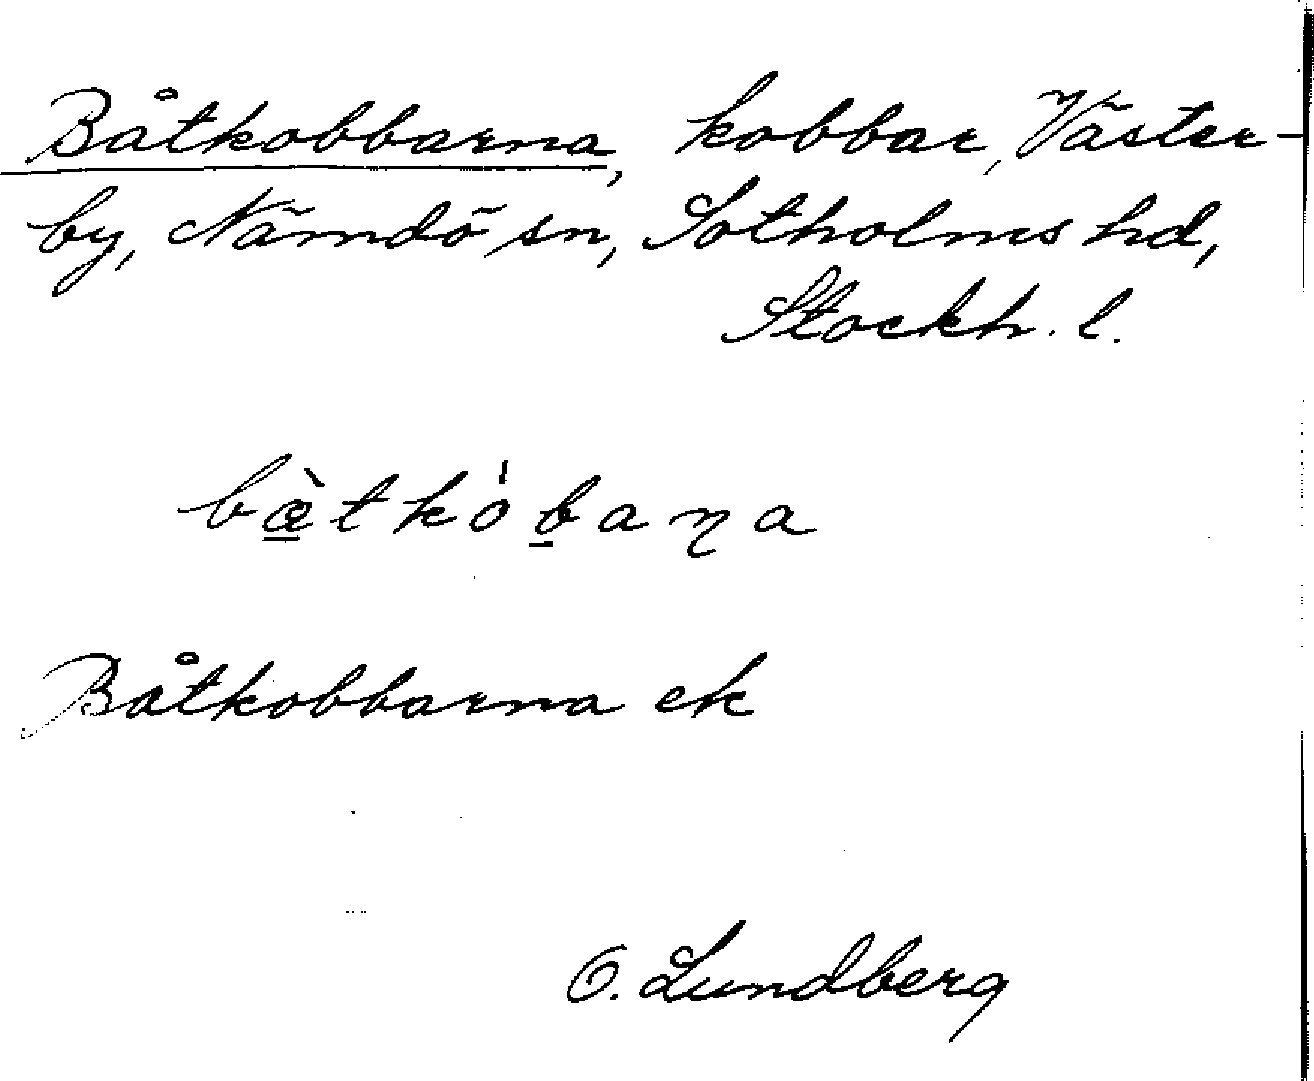 Båtkobbarna, kobbar, Väster-
by, Nämdö sn, Sotholms hd,
Stockh. l.
bæ̀tkȯ́baɳa
Båtkobbarna ek
O. Lundberg